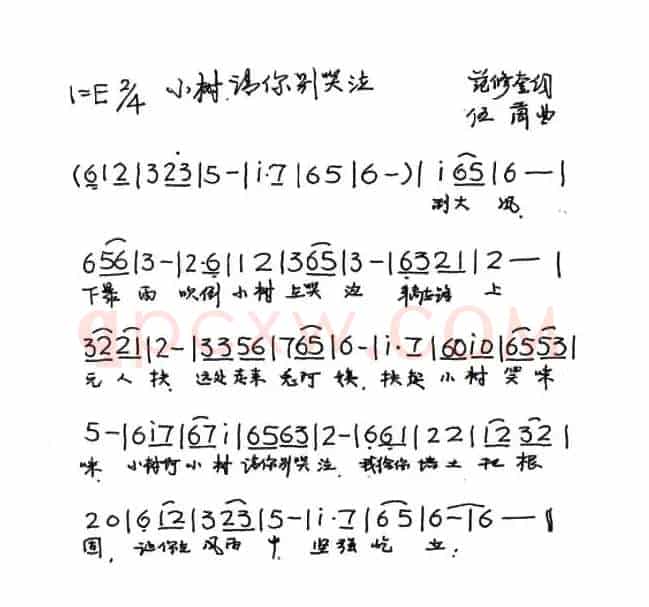 1=E 2/4 小树请你别哭泣 范修奎词
伍 曲
(6 1 2 | 3 2 3 | 5 - | i · 7 | 6 5 | 6 - ) | i 6 5 | 6 — |
刮大 风
6 5 6 | 3 - | 2 · 6 | 1 2 | 3 6 5 | 3 - | 6 3 2 1 | 2 — |
下暴 雨 吹倒 小树 哭 泣 上
3 2 2 1 | 2 - | 3 3 5 6 | 7 6 5 | 6 - | i · 7 | 6 0 i 0 | 6 5 5 3 |
无 人 扶 远处走来 阿 姨 扶起 小 树 笑 咪
5 - | 6 i 7 | 6 7 i | 6 5 6 3 | 2 - | 6 6 1 | 2 2 | 1 2 3 2 |
咪 小树呀小 树 请你别哭泣 我给你 培土 把 根
2 0 | 6 1 2 | 3 2 3 | 5 - | i · 7 | 6 5 | 6 - | 6 — ‖
固, 让你在 风雨 中 坚强 屹 立.
qpcxw.COM